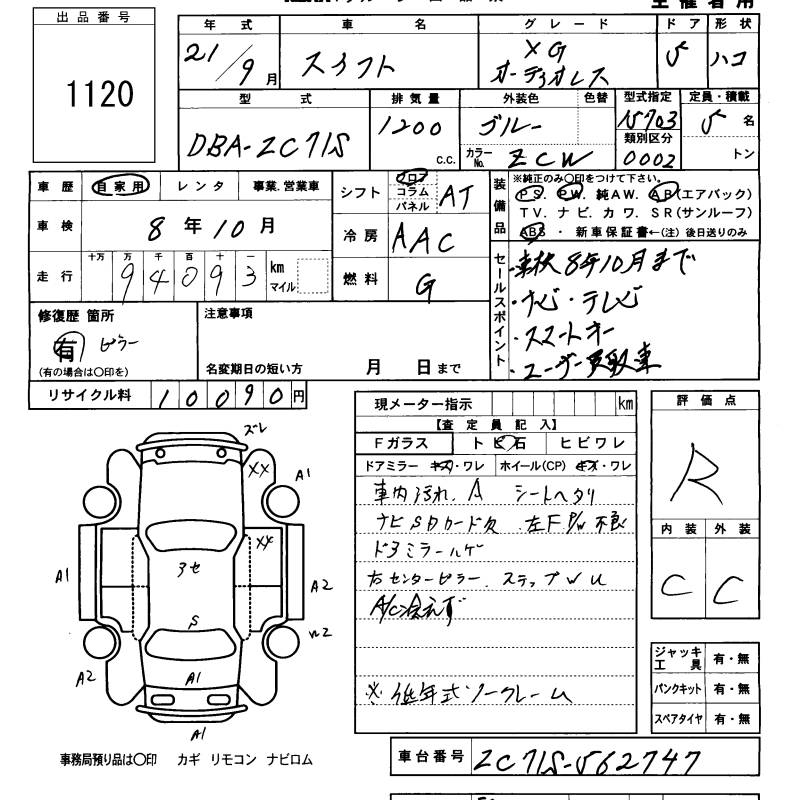 出品番号
1120
年式 車名 グレード ドア 形状
21/9月 スイフト XG オーディオレス 5 ハコ
型式 排気量 外装色 色替 型式指定 定員・積載
DBA-ZC71S 1200 c.c. ブルー 15703 5名
カラーNo. ZCW 類別区分 0002 トン
車歴 自家用 レンタ 事業.営業車
車検 8年10月
走行 十万 万 千 百 十 一
94093 km マイル
シフト フロア コラム パネル AT
冷房 AAC
燃料 G
装備品
※純正のみ〇印をつけて下さい。
PS. PW. 純AW. AB(エアバック)
TV. ナビ. カワ. SR(サンルーフ)
ABS ・ 新車保証書←(注)後日送りのみ
セールスポイント
・車検8年10月まで
・ナビ・テレビ
・スマートキー
・ユーザー買取車
修復歴 箇所
有 ピラー
(有の場合は〇印を)
注意事項
名変期日の短い方 月 日まで
リサイクル料 10090円
現メーター指示 km
【査定員記入】
Fガラス トビ石 ヒビワレ
ドアミラー キズ・ワレ ホイール(CP) キズ・ワレ
車内汚れ. A シートヘタリ
ナビSDカード欠 左F P/W不良
ドアミラーハゲ
右センターピラー. ステップWU
A/C冷えず
※低年式ノークレーム
評価点
R
内装 外装
C C
ジャッキ工具 有・無
パンクキット 有・無
スペアタイヤ 有・無
ズレ
XX
A1
XX
アセ
A1
A2
S
W2
A2
A1
A1
事務局預り品は〇印 カギ リモコン ナビロム
車台番号 ZC71S-562747